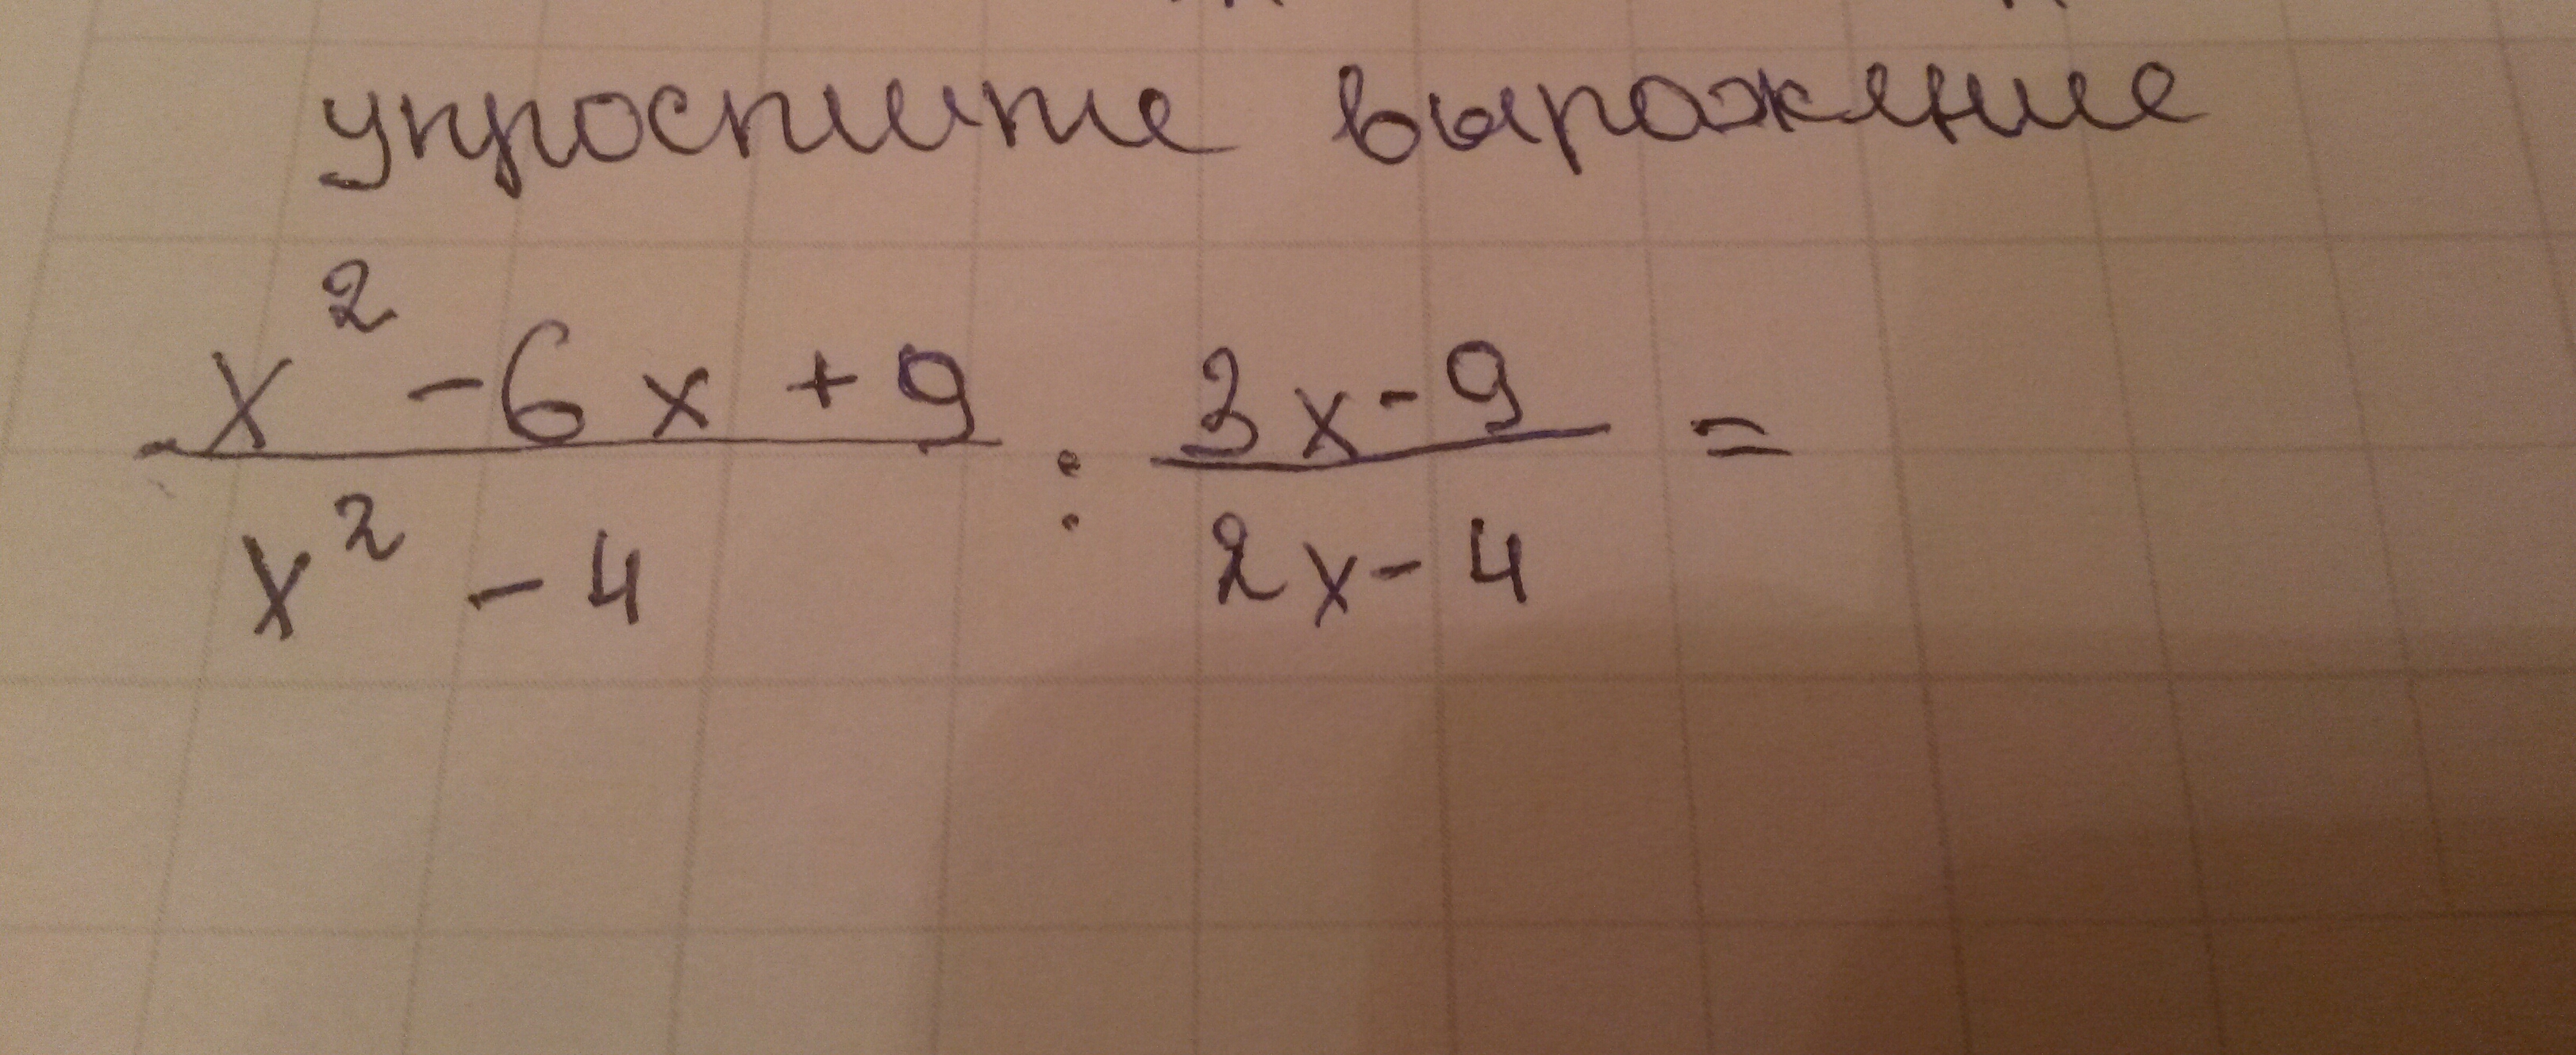 упростите выражение
x² - 6x + 9 / x² - 4 : 3x - 9 / 2x - 4 =